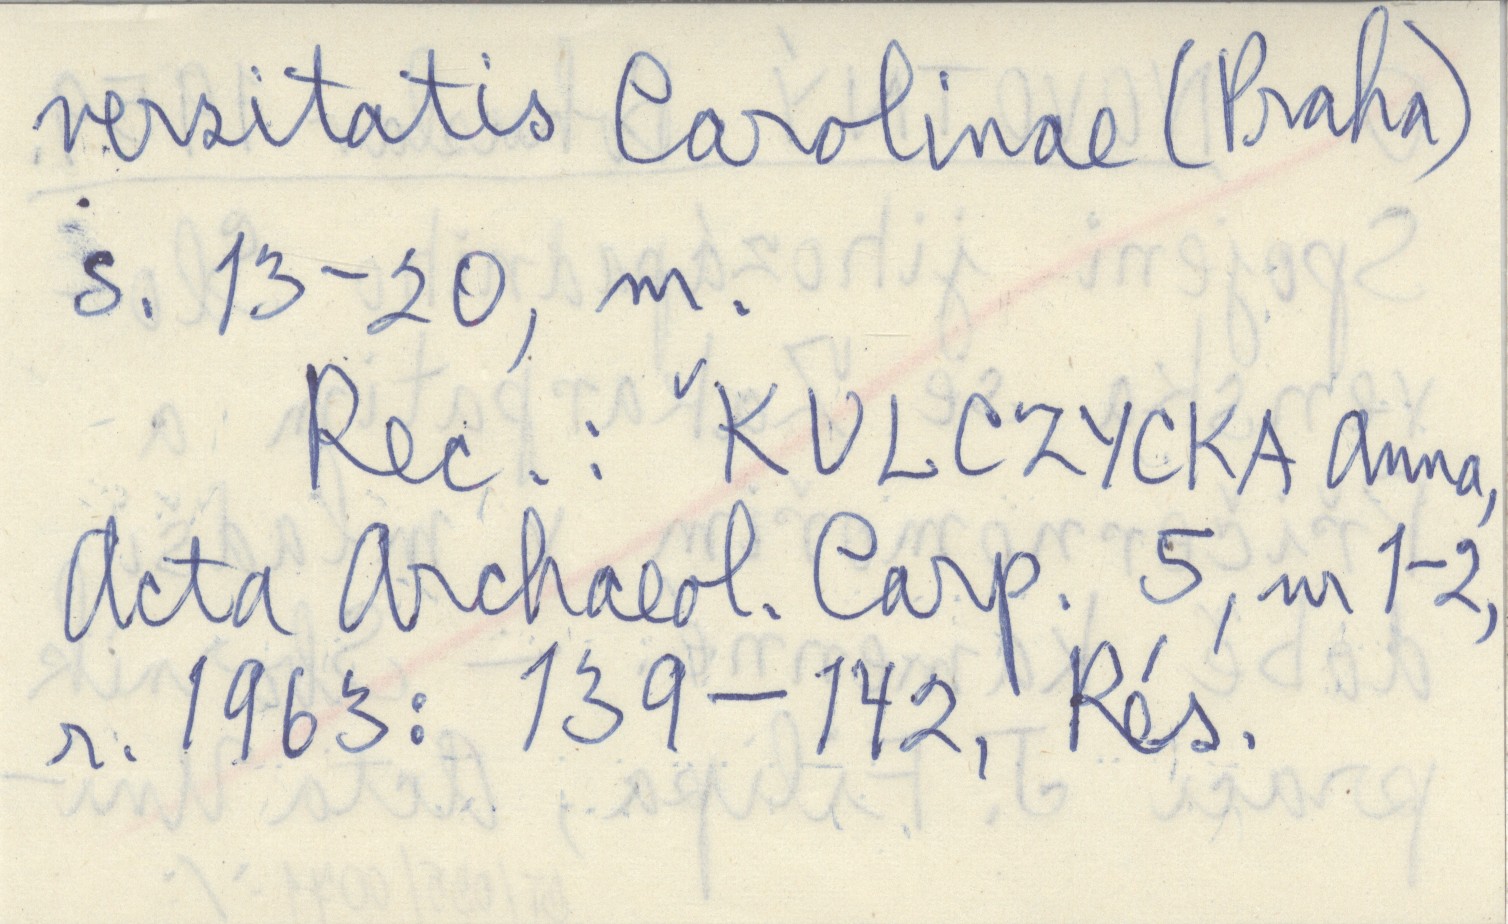 versitatis Carolinae (Praha)
s. 13-20, m.
Rec.: ˇKULCZYCKA Anna,
Acta Archaeol. Carp. 5, nr 1-2,
r. 1963: 139-142, Rés.